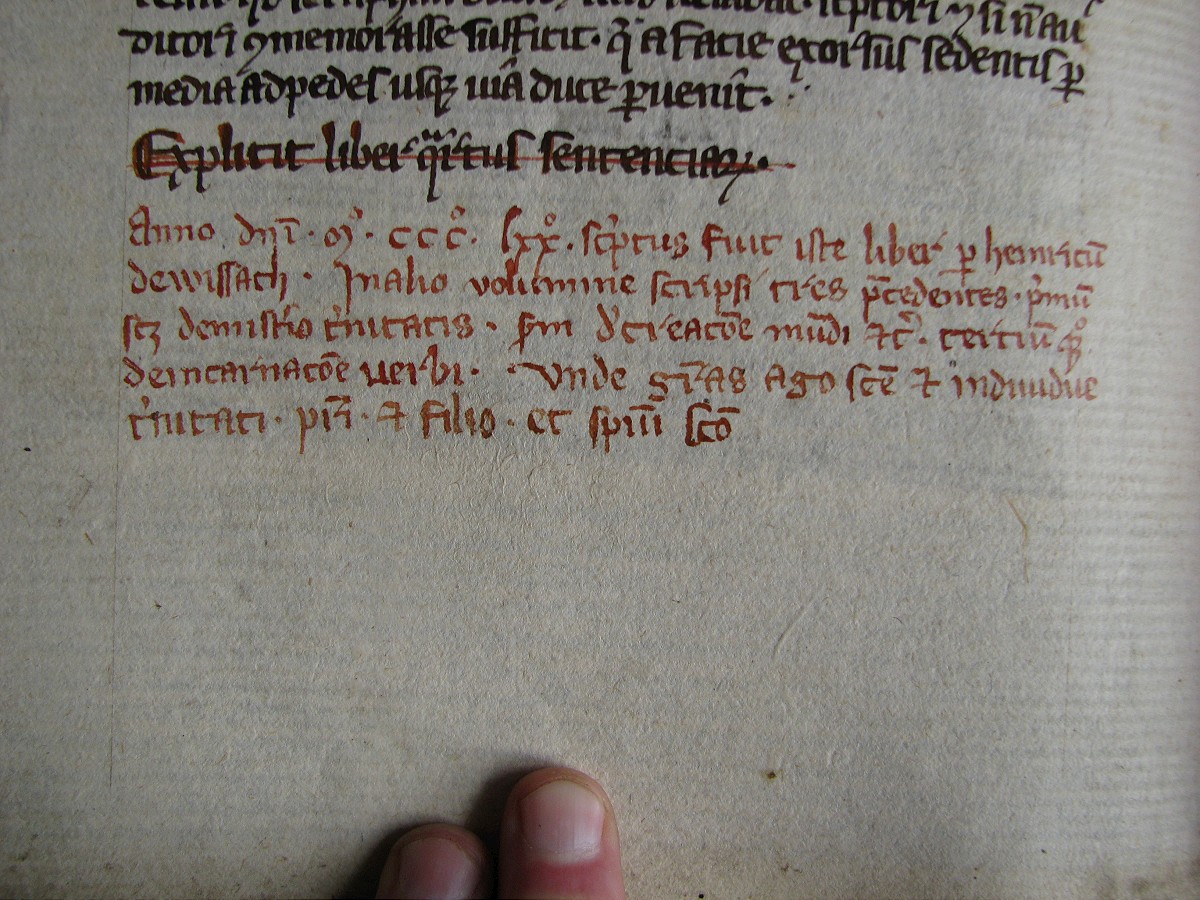 ditori ꝯmemorasse sufficit. q̄ a facie exorsus sedentis ꝑ
media ad pedes usqꝫ uiā duce ꝑuenit̄.
Explicit liber qͣrtus sentenciaꝝ.
Anno dnī. mͦ. cccͦ. lxxͦ. scͥptus fuit iste liber ꝑ heinricū
dewissach. In alio volumine scripsi tres p̄cedentes. pͥmū
scꝫ demist'io tͥnitatis. scd'm d'creacōe mūdi ⁊c̄. tertiū qͦꝫ
deincarnacōe uerbi. Vnde gr̄as ago scē ⁊ indiuidue
tͥnitati. pr̄i. ⁊ filio. et spūi scō